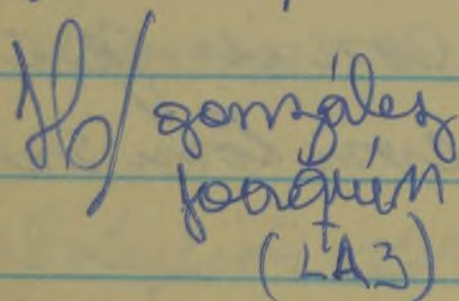 Ho/ gonzález
joaquín
(LA3)